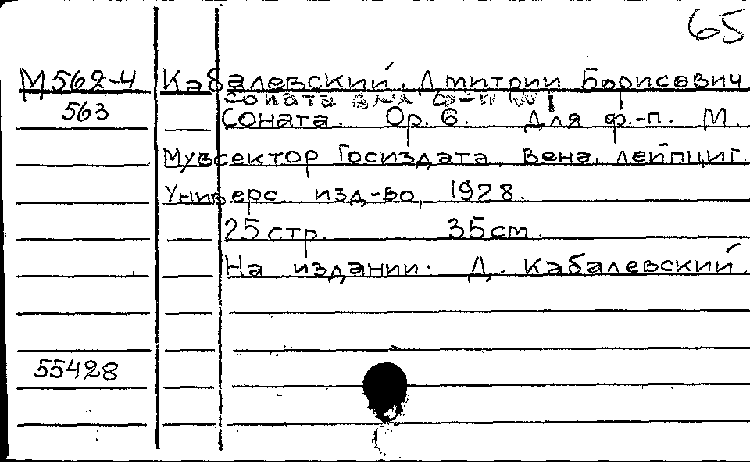 65
М562-4 Кабалевский, Дмитрий Борисович
Соната для ф-п №1
563 Соната. Op. 6. Для ф.-п. М.
Музсектор Госиздата, Вена, Лейпциг.
Универс. изд-во, 1928.
25 стр. 35 см.
На издании: Д. Кабалевский.
55428